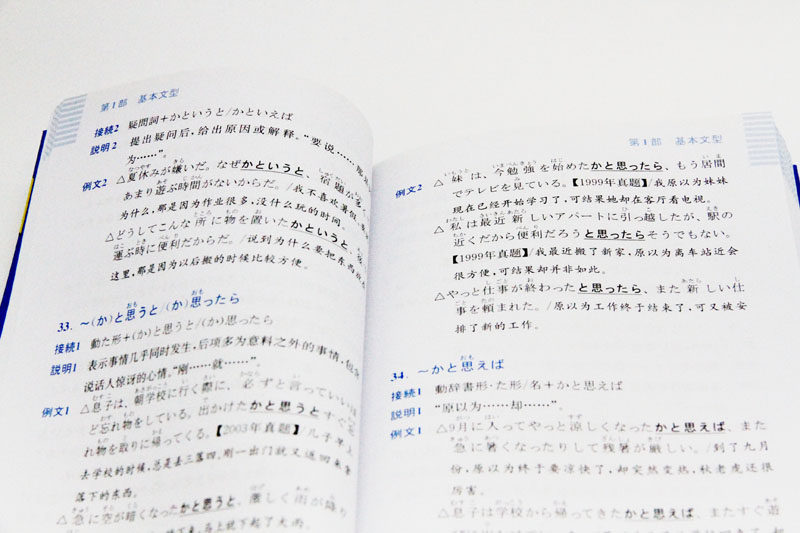 第1部 基本文型
接続2 疑問詞+かというと/かといえば
説明2 提出疑问后,给出原因或解释。“要说……
为……”。
例文2 △夏休みが嫌いだ。なぜかというと、宿題が
あまり遊ぶ時間がないからだ。/我不喜欢暑假,
为什么,那是因为作业很多,没什么玩的时间。
△どうしてこんな所に物を置いたかというと、
運ぶ時に便利だからだ。/说到为什么要把东西
这里,那是因为以后搬的时候比较方便。
33. ～(か)と思うと/(か)思ったら
接続1 動た形+(か)と思うと/(か)思ったら
説明1 表示事情几乎同时发生,后项多为意料之外的事情,包含
说话人惊讶的心情。“刚……就……”。
例文1 △息子は、朝学校に行く際に、必ずと言っていいほ
ど忘れ物をしている。出かけたかと思うとすぐ
れ物を取りに帰ってくる。【2003年真题】/儿子早上
去学校的时候,总是丢三落四,刚一出门就又返回来拿
落下的东西。
△急に空が暗くなったかと思うと、激しく雨が降り
第1部 基本文型
例文2 △妹は、今勉強を始めたかと思ったら、もう居間
でテレビを見ている。【1999年真题】/我原以为妹妹
现在已经开始学习了,可结果她却在客厅看电视。
△私は最近新しいアパートに引っ越したが、駅の
近くだから便利だろうと思ったらそうでもない。
【1999年真题】/我最近搬了新家,原以为离车站近会
很方便,可结果却并非如此。
△やっと仕事が終わったと思ったら、また新しい仕
事を頼まれた。/原以为工作终于结束了,可又被安
排了新的工作。
34. ～かと思えば
接続1 動辞書形·た形/名+かと思えば
説明1 “原以为……却……”。
例文1 △9月に入ってやっと涼しくなったかと思えば、また
急に暑くなったりして残暑が厳しい。/到了九月
份,原以为终于要凉快了,却突然变热,秋老虎还很
厉害。
△息子は学校から帰ってきたかと思えば、またすぐ遊